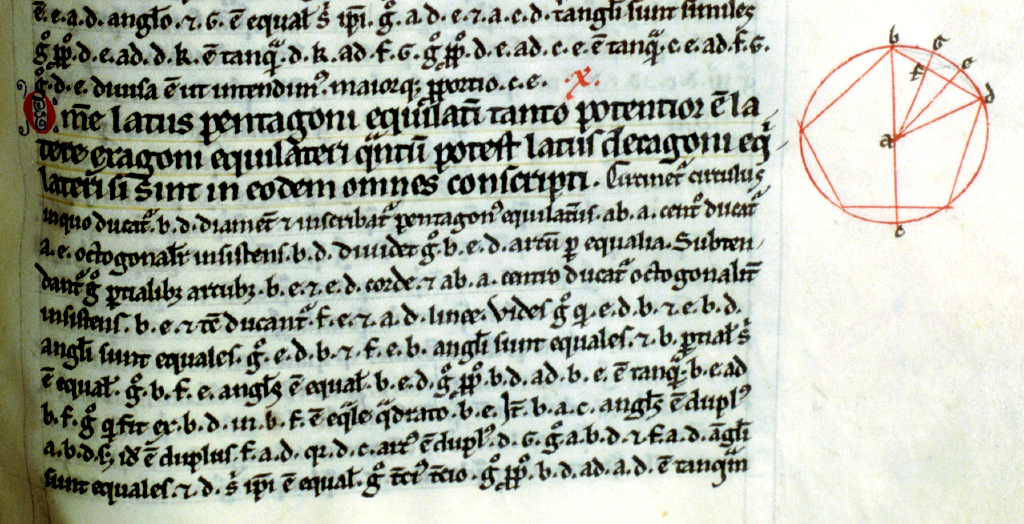 ē.e.a.d. anglo .⁊.G. ē equal' s' ip̄i. g°. a.d.e.⁊.a.c.d. t̄angl'i sunt similes
g° p̄p°.d.e.ad.d.k. ē tanq̄.d.k.ad.f.G. g° p̄p°.d.e.ad.c.e. ē tanq̄.c.e.ad.f.G.
g°.d.e. diuisa ē ut intendim'. maiorq; p̄portio.c.e. .x.
Om̄e latus pentagoni equilat'i tanto potentior ē la
tere exagoni equilateri q̄ntū potest latus decagoni eq'
lateri si sint in eodem omnes conscripti. Circinet' circulus
in quo ducat'.b.d. diamet' ⁊ inscribat' pentagon' equilat'us. ab.a. cent° ducat'
a.e. octogonalit' insistens.b.d. diuidet g°.b.e.d. arcū p̄ equalia. Subten
dant' g° p̄tialib; arcub; .b.e.⁊.e.d. corde.⁊ ab.a. centro ducat' octogonalit'
insistens.b.e.⁊ tē ducant'.f.e.⁊.a.d. linee. Vides g° q'.e.d.b.⁊.e.b.d.
angl'i sunt equales. g°.e.d.b.⁊.f.e.b. angl'i sunt equales.⁊.b. p̄tial' s'
ē equal'. g°.b.f.e. angl's ē equal'.b.e.d. g° p̄p°.b.d.ad.b.e. ē tanq̄.b.e.ad
b.f. g° q' fit ex.b.d. in.b.f. ē eq'le q̄drato.b.e. It̄.b.a.c. angl's ē dupl'
a.b.d. s; id' ē duplus.f.a.d. q'.d.c. arc' ē dupl'.d.G. g°.a.b.d.⁊.f.a.d. āgl'i
sunt equales.⁊.d. s' ip̄i ē equal'. g° t̄ci' t̄cio. g° p̄p°.b.d.ad.a.d. ē tanq̄m
b
G
f
e
d
a
c